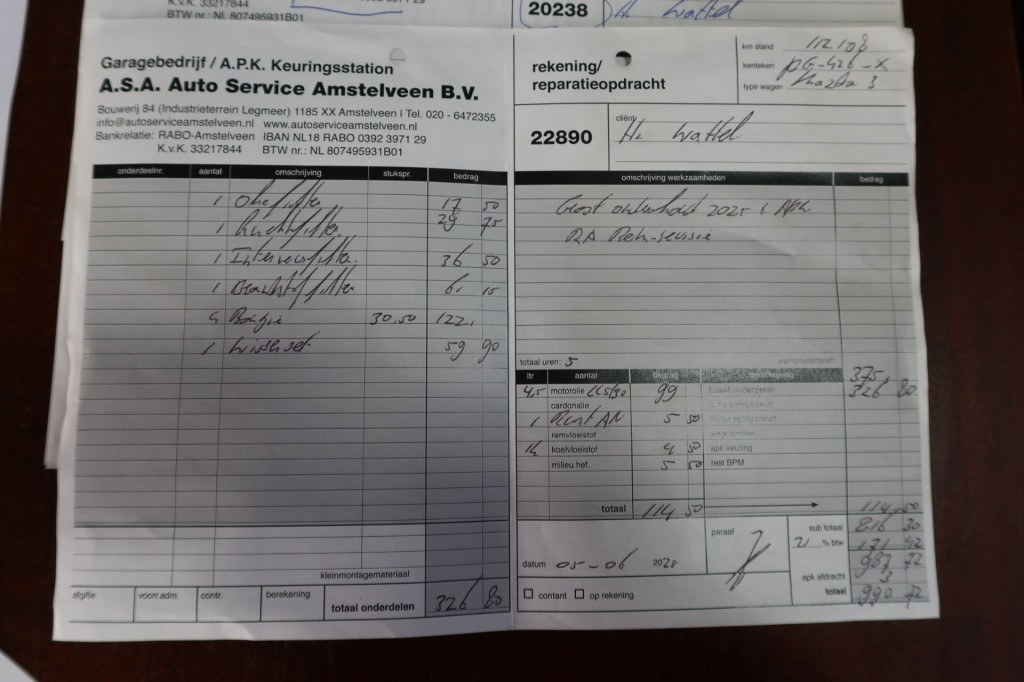 K.v.K. 33217844
BTW nr.: NL 807495931B01
20238
Hr Wattel
Garagebedrijf / A.P.K. Keuringsstation
A.S.A. Auto Service Amstelveen B.V.
Bouwerij 84 (Industrieterrein Legmeer) 1185 XX Amstelveen | Tel. 020 - 6472355
info@autoserviceamstelveen.nl www.autoserviceamstelveen.nl
Bankrelatie: RABO-Amstelveen IBAN NL18 RABO 0392 3971 29
K.v.K. 33217844 BTW nr.: NL 807495931B01
onderdeelnr. aantal omschrijving stukspr. bedrag
1 Oliefilter 17 50
1 Luchtfilter 29 75
1 Interieurfilter 36 50
1 Brandstoffilter 6, 15
4 Bougie 30,50 122,
1 Wisserset 59 90
kleinmontagemateriaal
afgifte voorr.adm. contr. berekening totaal onderdelen 326 80
rekening/
reparatieopdracht
km stand 112108
kenteken
type wagen Mazda 3
22890
cliënt Hr Wattel
omschrijving werkzaamheden bedrag
Groot onderhoud 2025 & APK
RA Rem-revisie
totaal uren: 5
375
ltr aantal bedrag
4,5 motorolie 99 totaal onderdelen 326 80
cardonolie
1 5 50
remvloeistof
koelvloeistof 4 50 apk keuring
milieu hef. 5 50 rest BPM
totaal 114 50 114,50
paraaf
sub totaal 816 30
21 % btw 171 42
987 72
apk afdracht 3
totaal 990 72
datum 05-06 202
contant op rekening